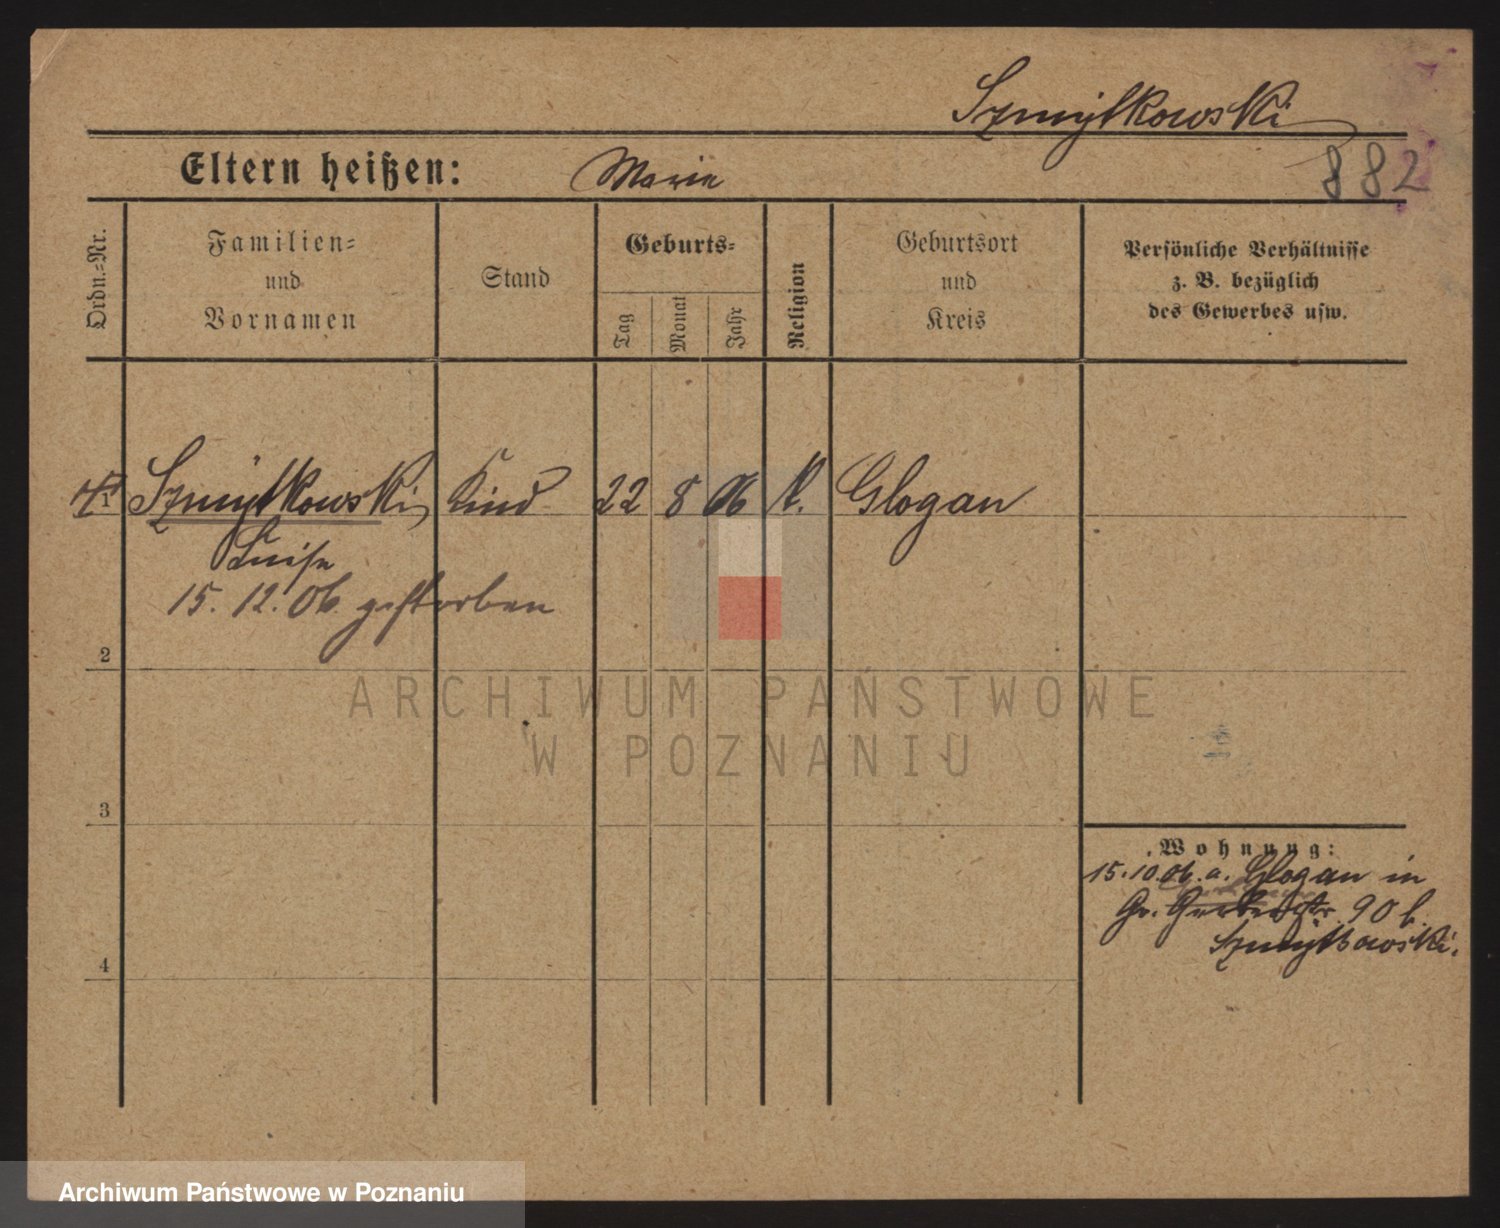 Szmytkowski
Eltern heißen: Marie
882
Ordn.-Nr.
Familien-
und
Vornamen
Stand
Geburts-
Tag
Monat
Jahr
Religion
Geburtsort
und
Kreis
Persönliche Verhältnisse
z. B. bezüglich
des Gewerbes usw.
1 Szmytkowski Kind 22 8 06 k. Glogau
Luise
15. 12. 06. gestorben
2
ARCHIWUM PAŃSTWOWE
W POZNANIU
3
Wohnung:
15.10.06. a. Glogau in
Gr. 90 b.
Szmytkowski.
4
Archiwum Państwowe w Poznaniu